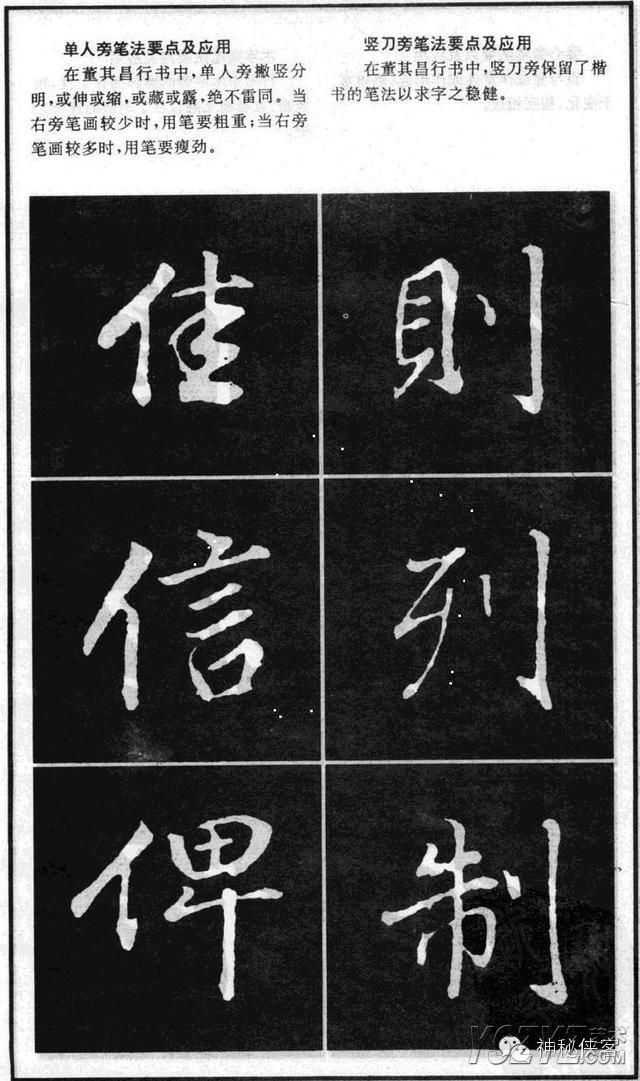 单人旁笔法要点及应用
在董其昌行书中,单人旁撇竖分
明,或伸或缩,或藏或露,绝不雷同。当
右旁笔画较少时,用笔要粗重;当右旁
笔画较多时,用笔要瘦劲。
竖刀旁笔法要点及应用
在董其昌行书中,竖刀旁保留了楷
书的笔法以求字之稳健。
佳
則
信
列
俾
制
神秘侠客